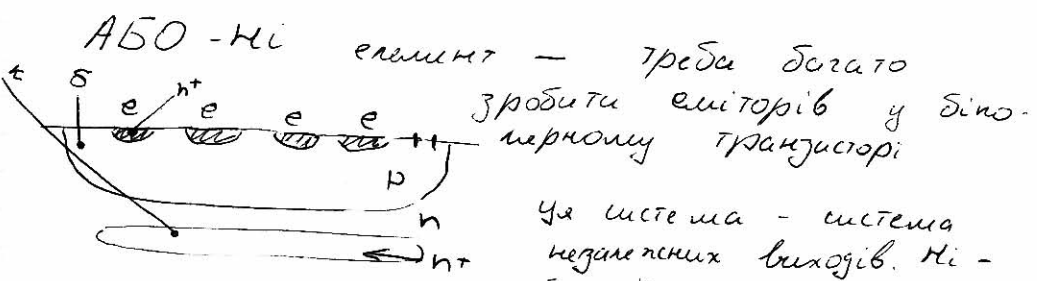 АБО-Ні елемент — треба багато
к б n+ зробити еміторів у біпо-
е е е е лярному транзисторі
p
n Ця система - система
n+ незалежних виходів. Ні-